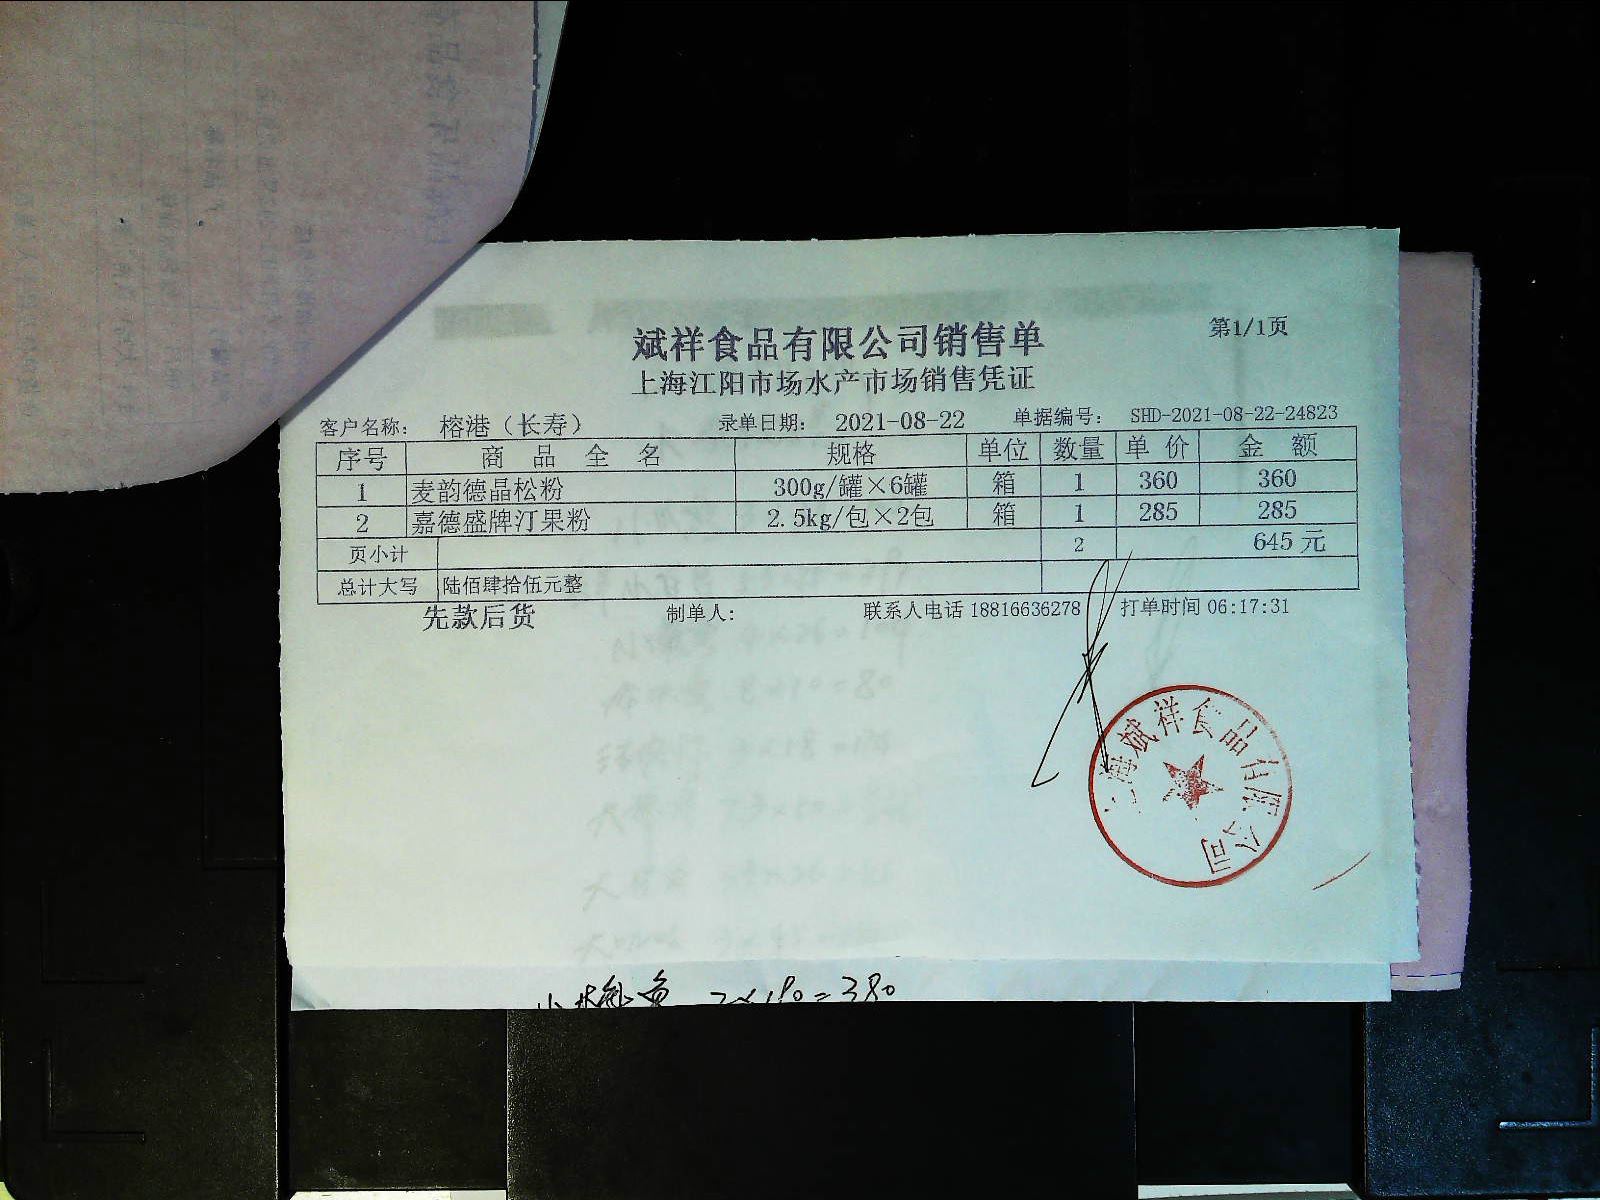 斌祥食品有限公司销售单
第1/1页
上海江阳市场水产市场销售凭证
客户名称: 榕港（长寿） 录单日期: 2021-08-22 单据编号: SHD-2021-08-22-24823
序号 商品全名 规格 单位 数量 单价 金额
1 麦韵德晶松粉 300g/罐×6罐 箱 1 360 360
2 嘉德盛牌汀果粉 2.5kg/包×2包 箱 1 285 285
页小计 2 645 元
总计大写 陆佰肆拾伍元整
先款后货 制单人: 联系人电话 18816636278 打单时间 06:17:31
上海斌祥食品有限公司
2×190=380